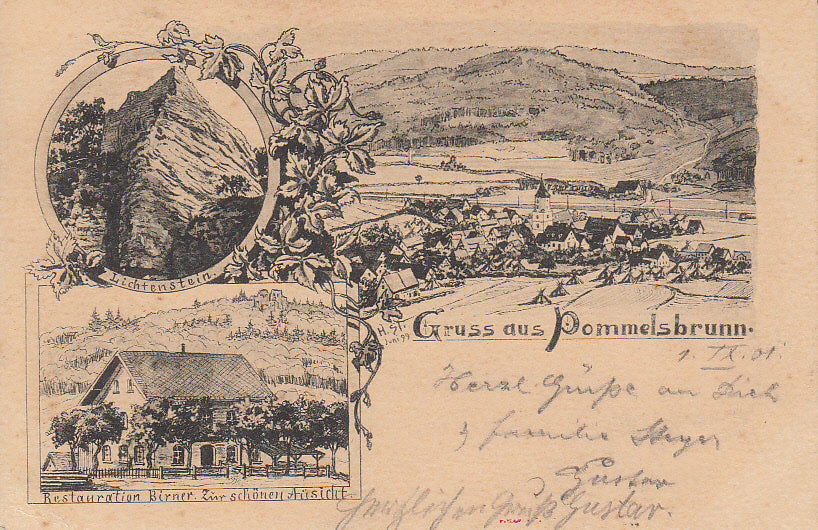 Lichtenstein
Gruss aus Pommelsbrunn.
1. IX. 01.
Herzl Grüße an Dich
familie
Gustav
Restauration Birner. Zur schönen Aussicht.
herzlichen Gruß Gustav.